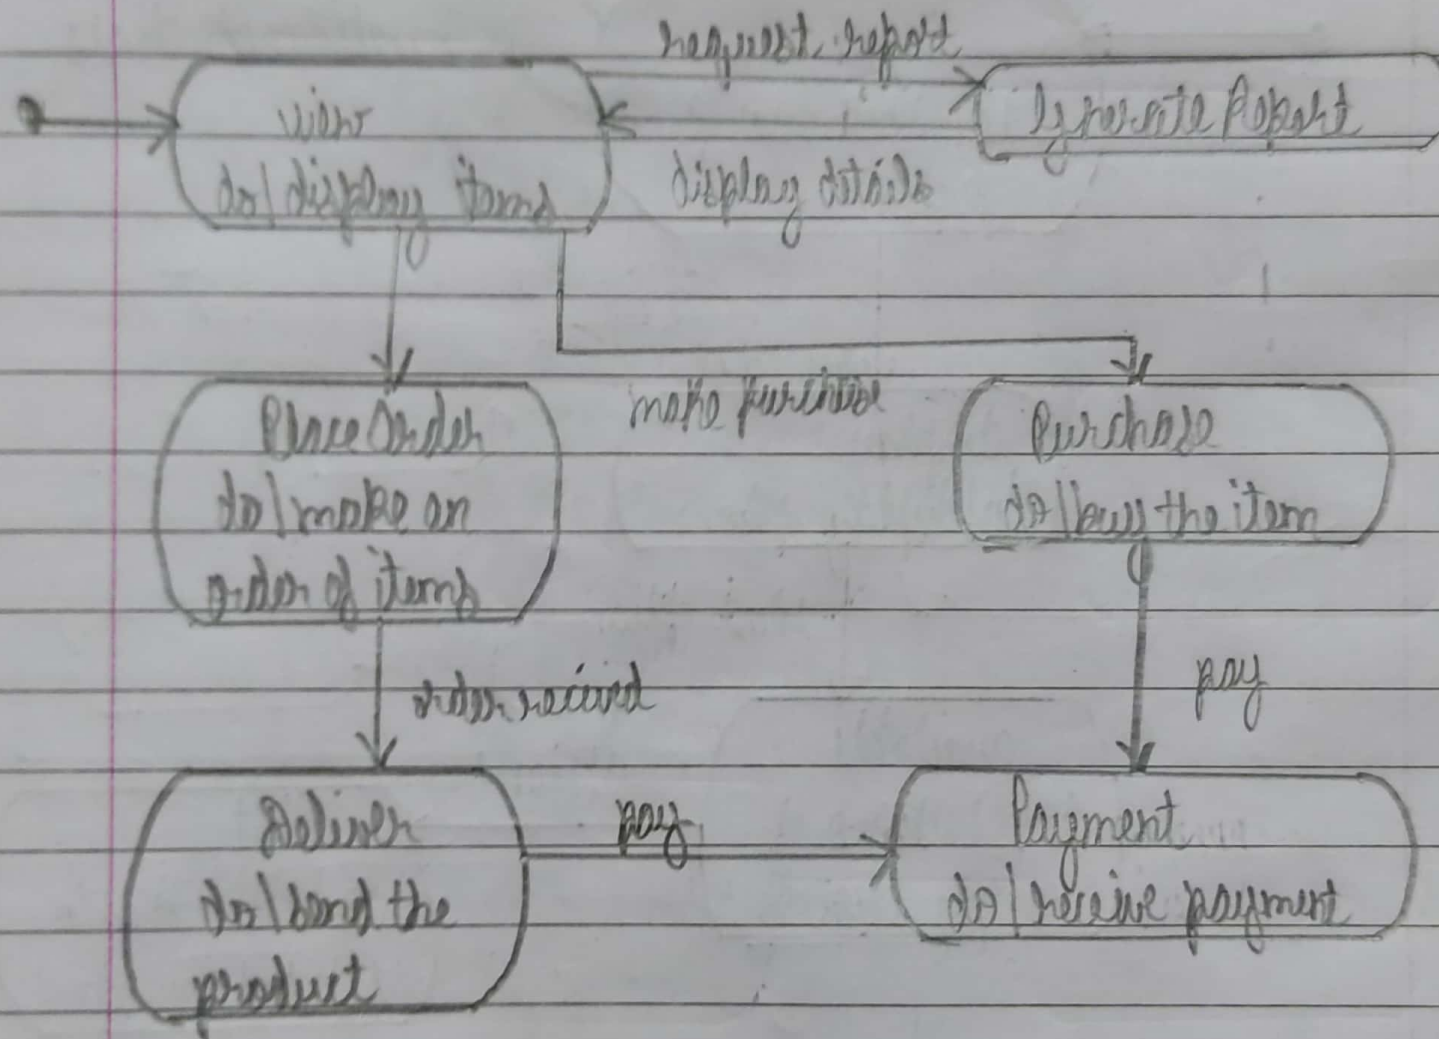 request report
view
do/display items
Generate Report
display details
Place Order
do/make an
order of items
make purchase
Purchase
do/buy the item
order received
pay
Deliver
do/send the
product
pay
Payment
do/receive payment